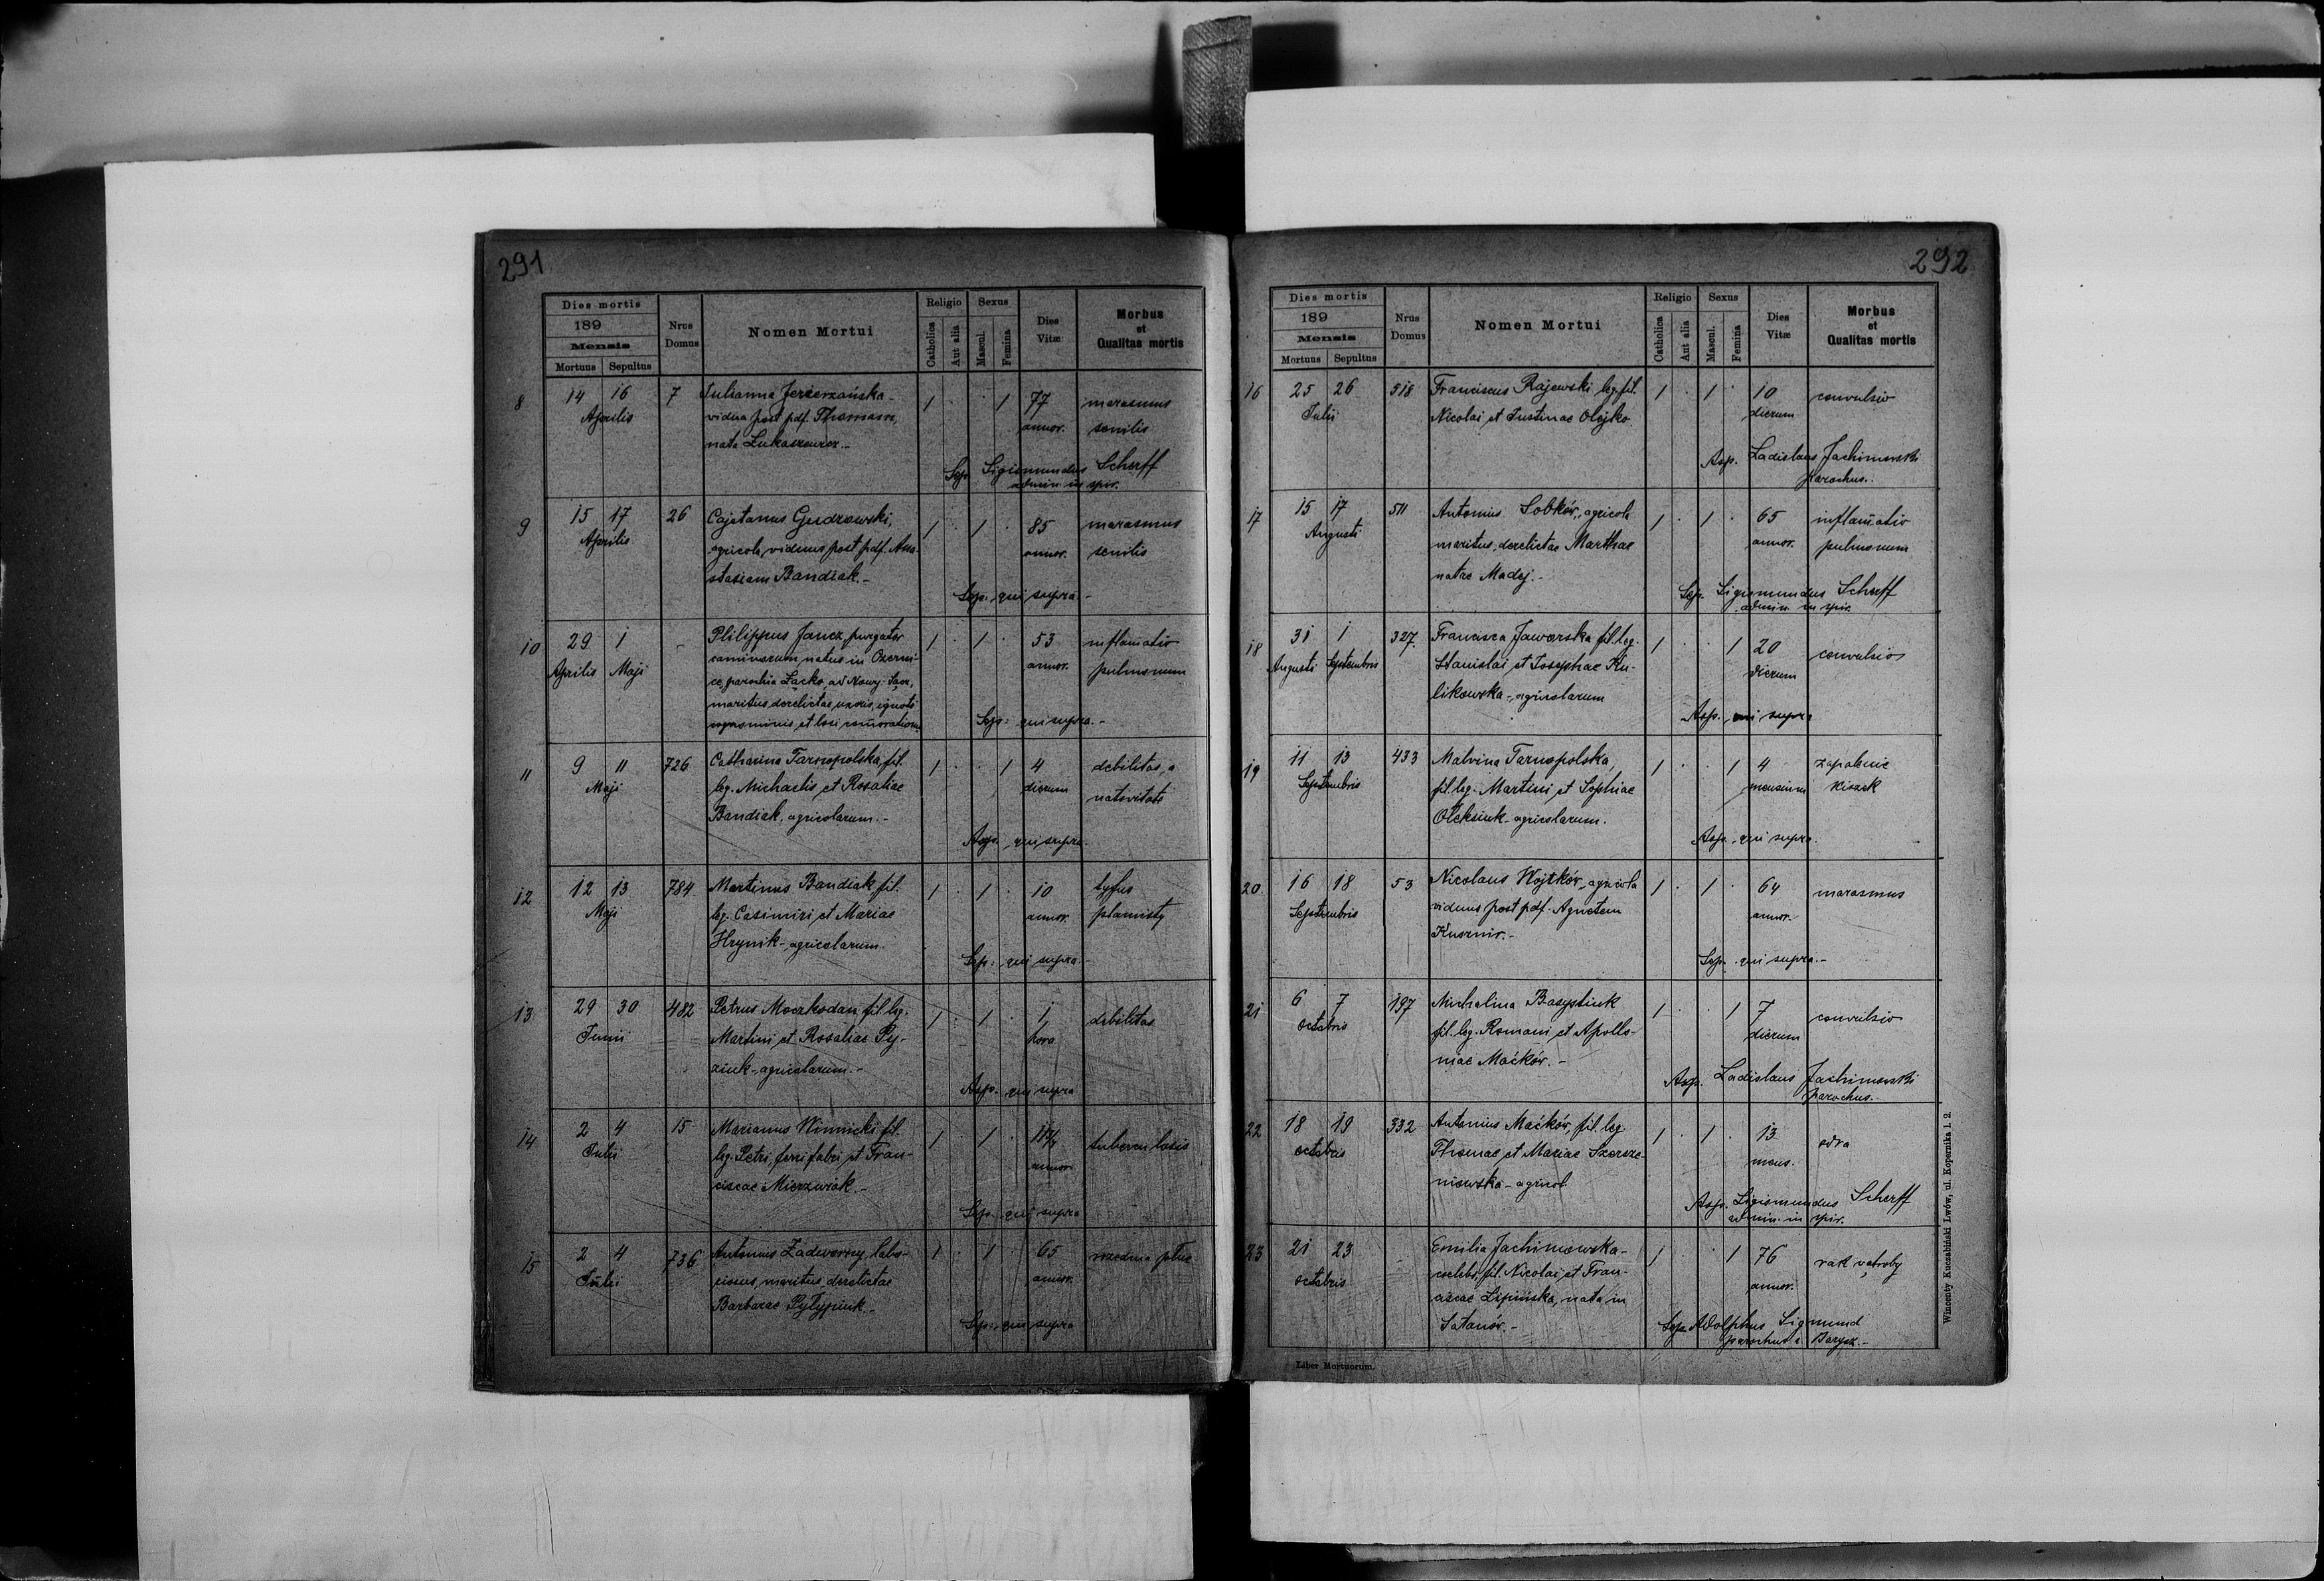 291
Dies mortis
189
Mensis
Mortuus Sepultus
Nrus Domus
Nomen Mortui
Religio
Catholica
Aut alia
Sexus
Mascul.
Femina
Dies Vitæ
Morbus et Qualitas mortis
8 14 16 7 Julianna Jezierzańska - 1 . . 1 77 marasmus
Aprilis vidua post pdf. Thomam, annor. senilis
nata
Sep. Sigismundus Scherff
admin. in spir.
9 15 17 26 Cajetanus Gudzowski, 1 . 1 . 85 marasmus
Aprilis agricola, viduus post pdf. Ana- annor. senilis
stasiam Bandiak.-
Sep. qui supra.-
10 29 1 - Philippus Jancz, purgator 1 . 1 . 53 inflamatio
Aprilis Maji caminorum, natus in Czerni- annor. pulmonum
ce, parochia Łącko ad Nowy-Sącz,
maritus derelictae uxoris, ignoti
cognominis, et loci comorationis
Sep: qui supra.-
11 9 11 726 Catharina Tarnopolska, fil. 1 . . 1 4 debilitas, a
Maji leg. Michaelis et Rosaliae dierum nativitate
Bandiak, agricolarum.-
Asp. qui supra.
12 12 13 784 Martinus Bandiak fil. 1 . 1 . 10 tyfus
Maji leg. Casimiri et Mariae annor. plamisty
Hrynik-, agricolarum.
Sep: qui supra.-
13 29 30 482 Petrus Moczkodan fil. leg. 1 . 1 . 1 debilitas
Junii Martini et Rosaliae Py- hora
ziuk-, agricolarum.-
Asp. qui supra
14 2 4 15 Marianus Winnicki fil. 1 . 1 . tuberculosis
Julii leg. Petri, ferri fabri et Fran- annor.
ciscae Mierzwiak.-
Sep. qui supra
15 2 4 736 Antonius Zadworny, labo- 1 . 1 . 65 rozedma płuc
Julii riosus, maritus derelictae annor.
Barbarae Pyłypiuk.-
Sep: qui supra
292
Dies mortis
189
Mensis
Mortuus Sepultus
Nrus Domus
Nomen Mortui
Religio
Catholica
Aut alia
Sexus
Mascul.
Femina
Dies Vitæ
Morbus et Qualitas mortis
16 25 26 518 Franciscus Rajewski leg. fil. 1 . 1 . 10 convulsio
Julii Nicolai et Justinae Olejko. dierum
Asp. Ladislaus Jachimowski
parochus.
17 15 17 511 Antonius Sobków, agricola 1 . 1 . 65 inflamatio
Augusti maritus, derelictae Marthae annor. pulmonum
natae Madej.-
Sep. Sigismundus Scherff
admin. in spir.
18 31 1 327. Francisca Jaworska fil. leg. 1 . . 1 20 convulsio
Augusti Septembris Stanislai et Josephae Ku- dierum
likowska-, agricolarum
Asp. qui supra
19 11 13 433 Malvina Tarnopolska, 1 . . 1 4 zapalenie
Septembris fil. leg. Martini et Sophiae mensium kiszek
Oleksiuk - agricolarum.
Asp. qui supra.
20. 16 18 53 Nicolaus Wojtków, agricola 1 . 1 . 64 marasmus
Septembris viduus post pdf. Agnetem annor.
Kusznir.-
Sep. qui supra.-
21 6 7 197 Michalina Basystiuk 1 . . 1 7 convulsio
octobris fil. leg. Romani et Apollo- dierum
niae Maćków.-
Asp. Ladislaus Jachimowski
parochus.-
22 18 19 332 Antonius Maćków, fil. leg. 1 . 1 . 13 odra
octobris Thomae et Mariae Szersze- mens.
niowska - agricol
Asp. Sigismundus Scherff
admin. in spir.
23 21 23 - Emilia Jachimowska- 1 . . 1 76 rak wątroby
octobris coelebs, fil. Nicolai et Fran- annor.
ciscae Lipińska, nata in
Satanów.-
Sep. Adolphus Sigmund
parochus e Barysz.-
Liber Mortuorum.
Wincenty Kuczabiński Lwów, ul. Kopernika l. 2.